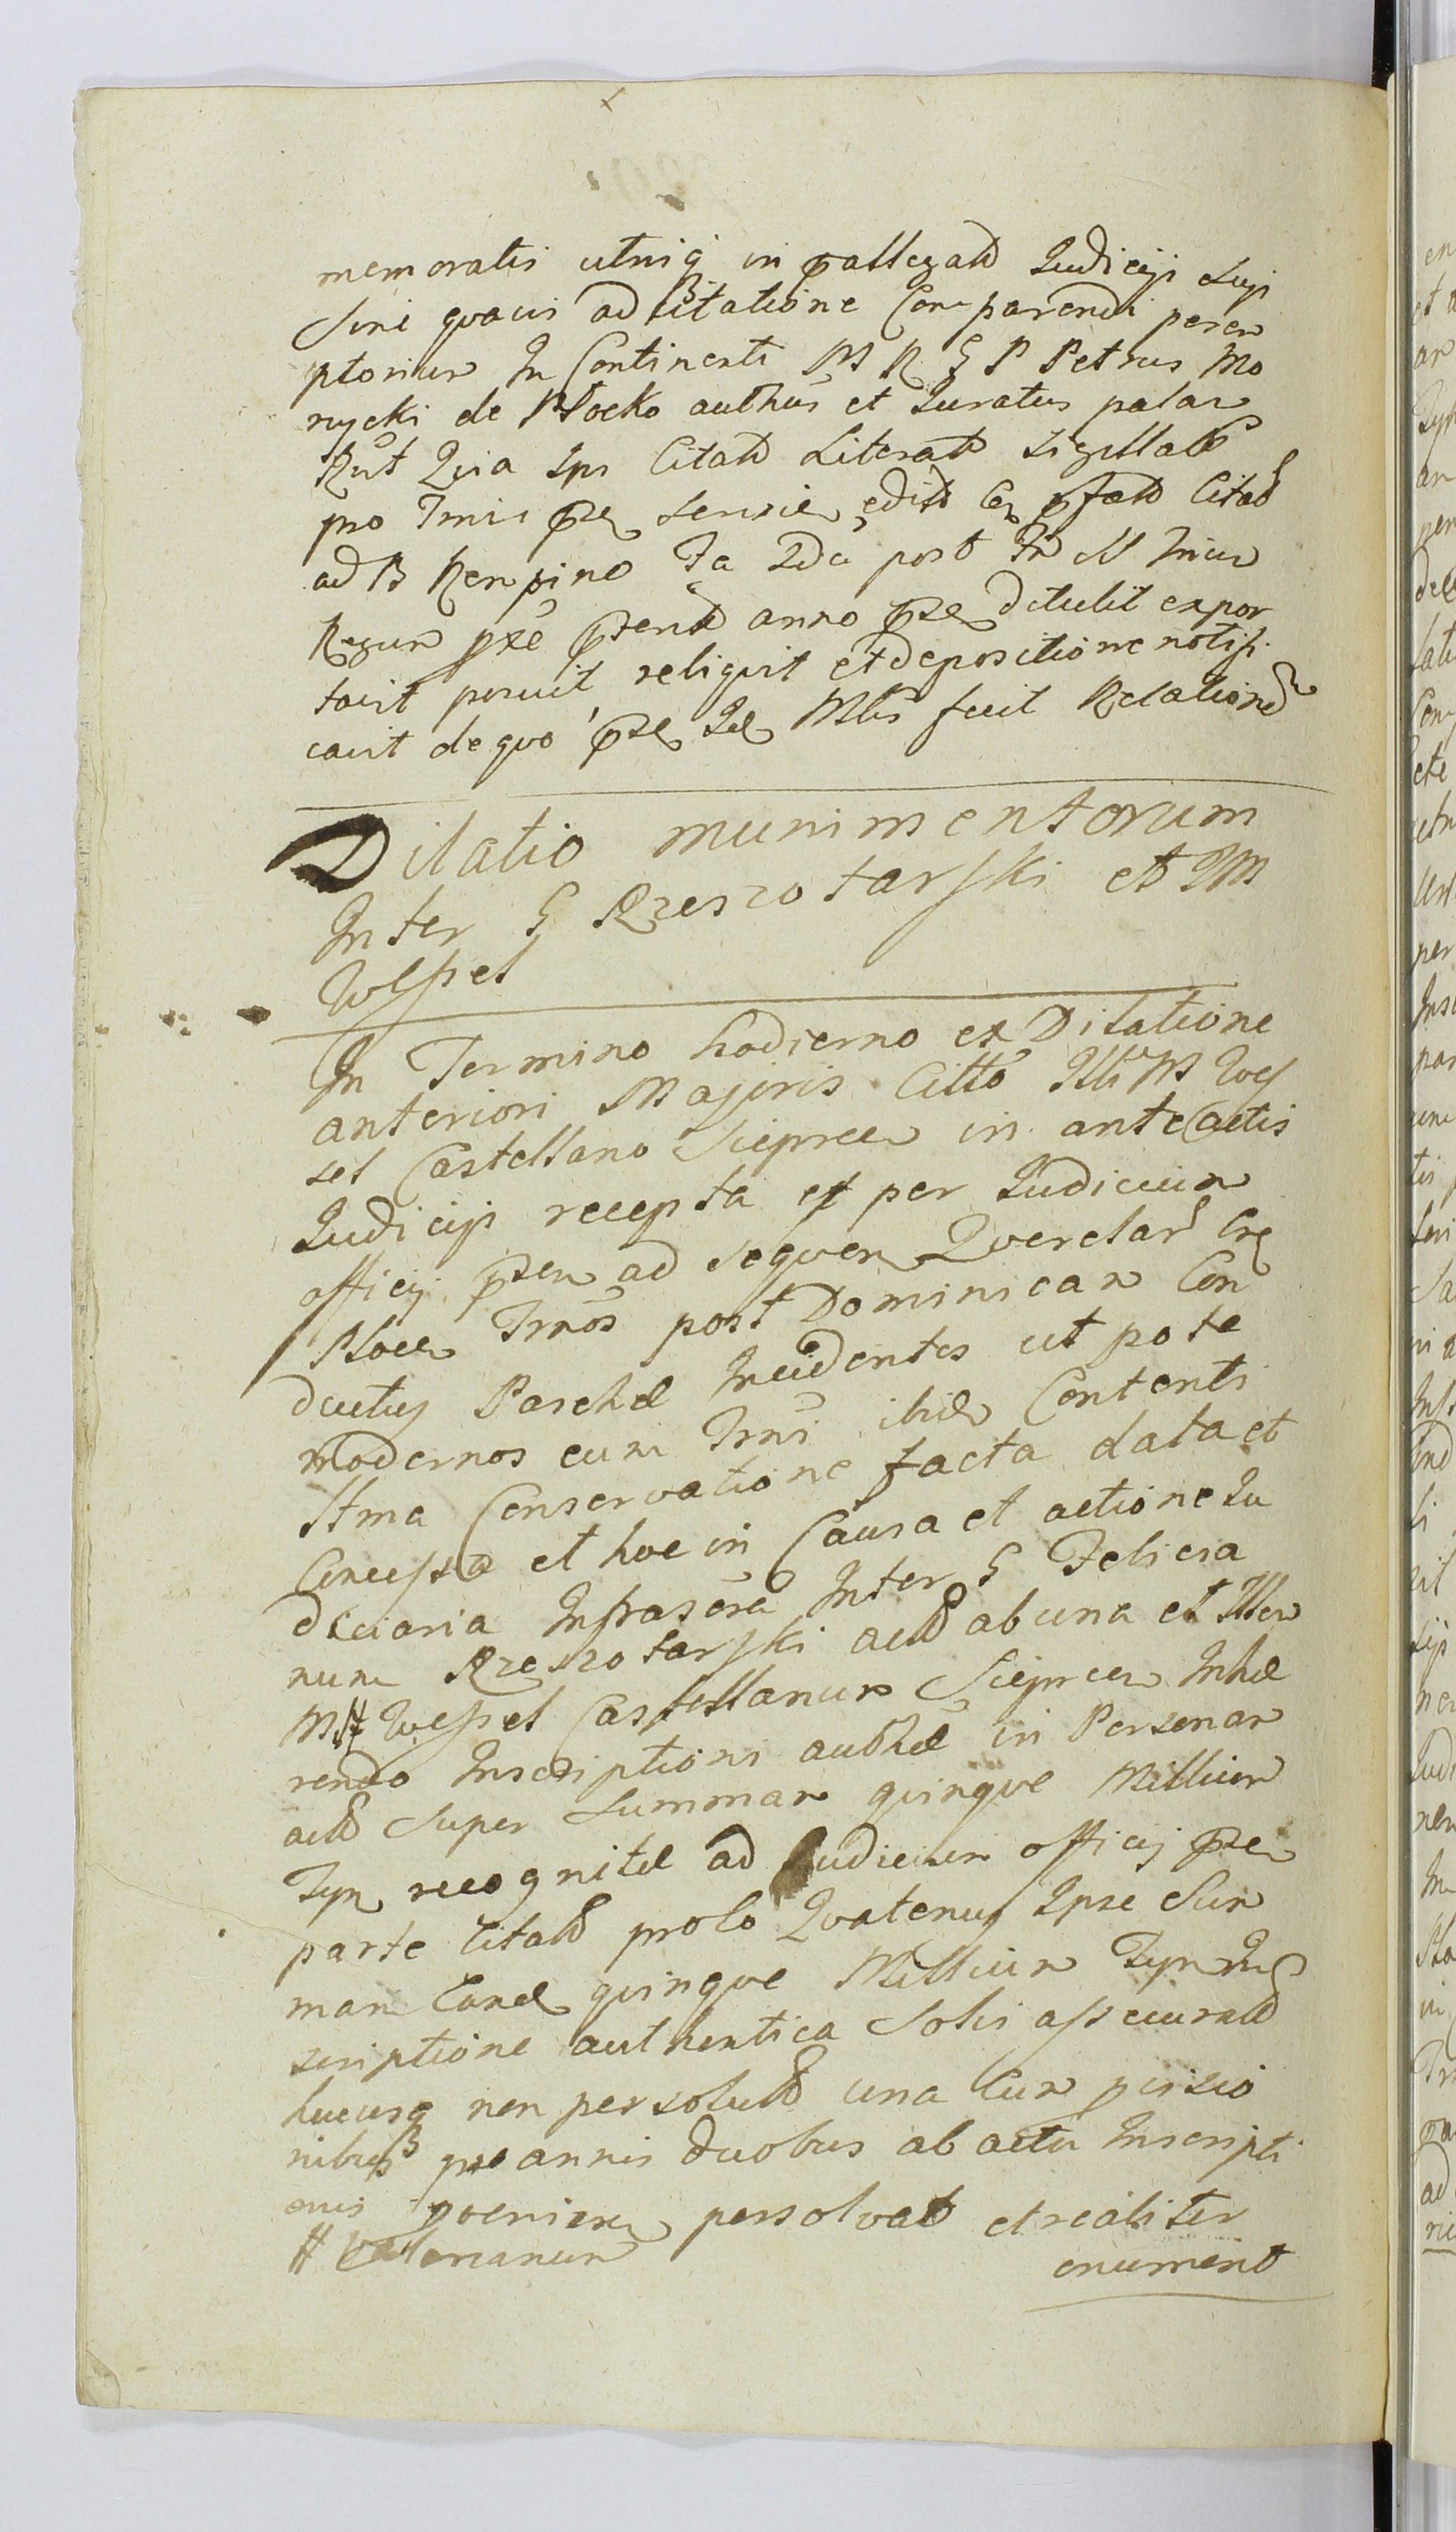 memoratis utniq in pallegato Judicij Sup
sine quavis ad Citatione Comparendi perem
ptorium In Continenti M R G P Petrus Mo
rycki de Plocko authus et Juratus palam
Rut Quia Ips Citato Literato sigillato
pro Tmis pse edito pfato Citato
ad B Rempino Fa 2da post Tr
Regum pxe psend anno pse detulit expor
tavit posuit reliquit et depositione notifi
cavit de quo pse fecit Relatione
Dilatio munimentorum
Inter G Rzeszotarski et IM
Wessel
In Termino hodierno ex Dilatione
anteriori Majoris Citto Illi M Wes
sel Castellano Sieprcen in anteactis
Judicijs recepta et per Judicium
officij psen ad sequen Querelar
Plocen Trnos post Dominicam Con
ductus Paschal Incidentes ut pote
modernos cum Trni ibid Contenti
stma Conservatione facta data et
Concessa et hoc in Causa et actione Iu
diciaria Infrascra Inter G Felicia
num Rzeszotarski act ab una et Illem
M # Wessel Castellanum Sieprcen Inhae
rendo Inscriptioni authae in Personam
act super summam quinque Millium
Tyn recognitae ad Judicium officij psen
parte Citato prolo Quatenus Ipse Sum
mam quinque Millium Tyn Ins
criptione authentica Solvi assecurato
hucusq non persoluto una Cum provisio
nibus pro annis duobus ab actu Inscripti
onis persolvat et realiter
# Valerianum
enument